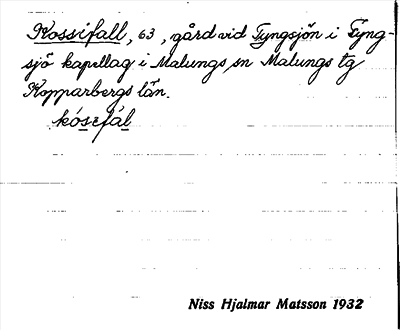 Kossifall, 63, gård vid Tyngsjön i Tyng-
sjö kapellag i Malungs sn Malungs tg
Kopparbergs län.
kósefàl
Niss Hjalmar Matsson 1932